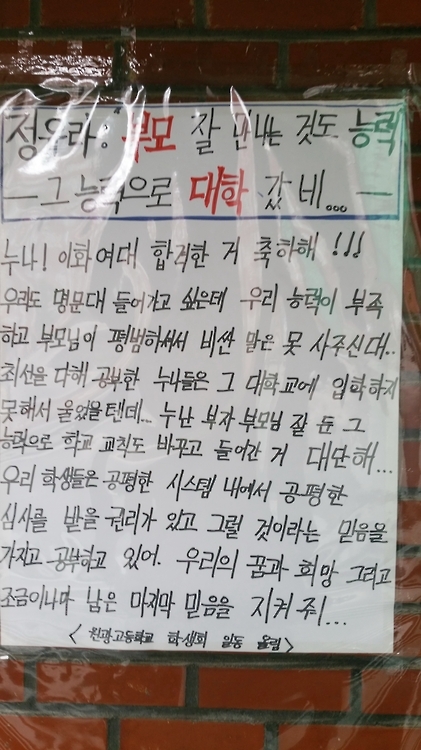 정유라: "부모 잘 만나는 것도 능력
— 그 능력으로 대학 갔네... —
누나! 이화여대 합격한 거 축하해 !!!
우리도 명문대 들어가고 싶은데 우리 능력이 부족
하고 부모님이 평범하셔서 비싼 말은 못 사주신대..
최선을 다해 공부한 누나들은 그 대학교에 입학하지
못해서 울었을텐데... 누난 부자 부모님 잘 둔 그
능력으로 학교 교칙도 바꾸고 들어간 거 대단해...
우리 학생들은 공평한 시스템 내에서 공평한
심사를 받을 권리가 있고 그럴 것이라는 믿음을
가지고 공부하고 있어. 우리의 꿈과 희망 그리고
조금이나마 남은 마지막 믿음을 지켜줘...
< 원광고등학교 학생회 일동 올림 >